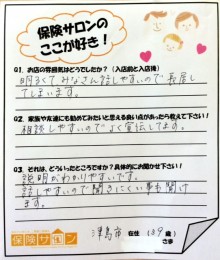 保険サロンの
ここが好き!
Q1. お店の雰囲気はどうでしたか?(入店前と入店後)
明るくてみなさん話しやすいので長居し
てしまいます。
Q2. 家族や友達にも勧めてみたいと思える良い点があったら教えて下さい!
相談しやすいのでよく宣伝してます。
Q3. それは、どういったところですか?具体的にお聞かせ下さい!
説明がわかりやすいです。
話しやすいので聞きにくい事も聞け
ます。
保険サロン
津島市 在住 (39 歳)
さま